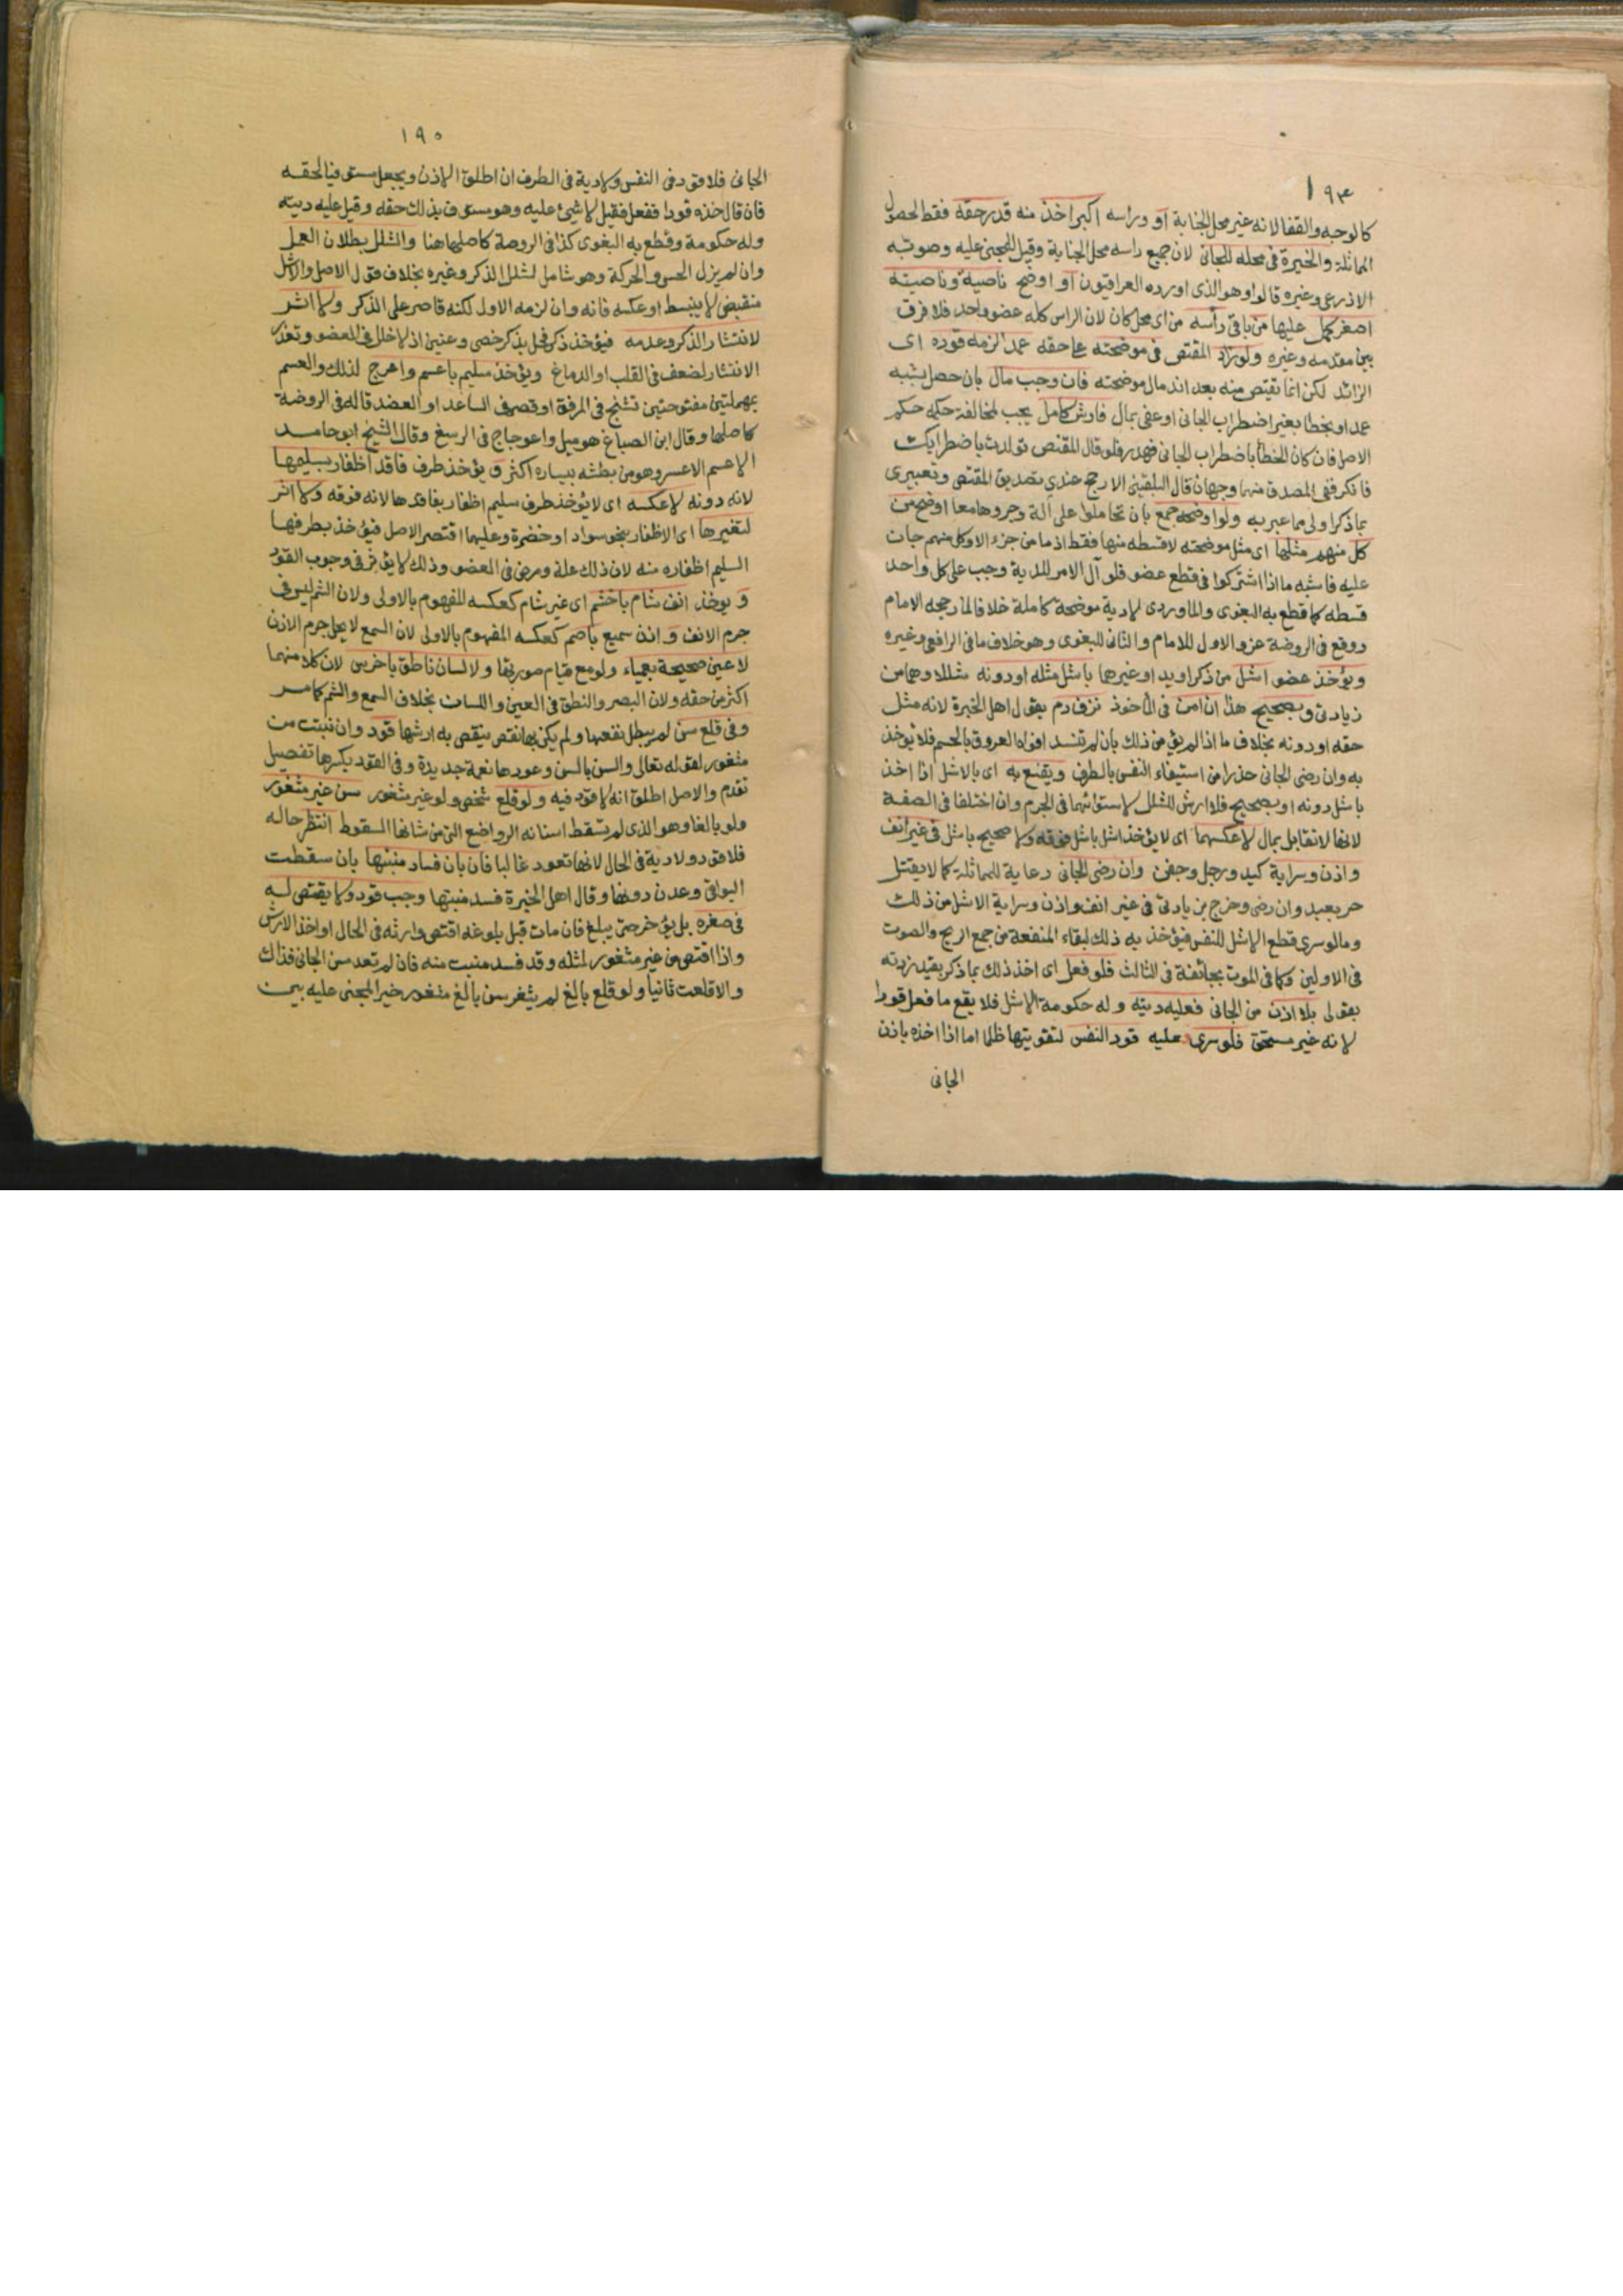 ١٩٤
كالوجه والقفا لانه غير محل الجناية او وراسه اكبر اخذ منه قدر حقه فقط لحصول
المماثلة والخيرة في محله للجاني لان جميع راسه محل الجناية وقيل للمجني عليه وصوبه
الاذرعي وغيره قالوا وهو الذي اورده العراقيون او اوضح ناصية وناصيته
اصغر كمل عليها من باقي رأسه من اي محل كان لان الراس كله عضو واحد فلا فرق
بين مقدمه وغيره ولو زاد المقتص في موضحته على حقه عمدا لزمه قوده اي
الزائد لكن انما يقتص منه بعد اندمال موضحته فان وجب مال بان حصل بشبه
عمد او بخطا بغير اضطراب الجاني او عفى بمال فارش كامل يجب لمخالفة حكمه حكم
الاصل فان كان الخطأ باضطراب الجاني فهدر فلو قال المقتص تولدت باضطرابك
فانكر ففي المصدق منهما وجهان قال البلقيني الارجح عندي تصديق المقتص وتعبيري
بما ذكر اولى مما عبر به ولو اوضحه جمع بان تحاملوا على آلة وجروها معا اوضح من
كل منهم مثلها اي مثل موضحته لا قسطه منها فقط اذ ما من جزء الا وكل منهم جان
عليه فاشبه ما اذا اشتركوا في قطع عضو فلو آل الامر للدية وجب على كل واحد
قسطه كما قطع به البغوي والماوردي لا دية موضحة كاملة خلافا لما رجحه الامام
ووقع في الروضة عزو الاول للامام والثاني للبغوي وهو خلاف ما في الرافعي وغيره
ويؤخذ عضو اشل من ذكر او يد او غيرها باشل مثله او دونه شللا وهما من
زيادتي وبصحيح هذا ان امن في المأخوذ نزف دم بقول اهل الخبرة لانه مثل
حقه او دونه بخلاف ما اذا لم يؤمن ذلك بان لم تنسد افواه العروق بالحسم فلا يؤخذ
به وان رضي الجاني حذرا من استيفاء النفس بالطرف ويقنع به اي بالاشل اذا اخذ
باشل دونه او بصحيح فلا ارش للشلل لاستوائهما في الجرم وان اختلفا في الصفة
لانها لا تقابل بمال لا عكسهما اي لا يؤخذ اشل باشل فوقه ولا صحيح باشل في غير انف
واذن وسراية كيد ورجل وجفن وان رضي الجاني رعاية للمماثلة كما لا يقتل
حر بعبد وان رضي وخرج بزيادتي في غير انف واذن وسراية الاشل من ذلك
وما لو سرى قطع الاشل للنفس فيؤخذ به ذلك لبقاء المنفعة من جمع الريح والصوت
في الاولين وكما في الموت بجائفة في الثالث فلو فعل اي اخذ ذلك بما ذكر بقيد زدته
بقولي بلا اذن من الجاني فعليه ديته وله حكومة الاشل فلا يقع ما فعل قودا
لانه غير مستحق فلو سرى فعليه قود النفس لتفويتها ظلما اما اذا اخذه باذن
الجاني
١٩٥
الجاني فلا قود في النفس ولا دية في الطرف ان اطلق الاذن ويجعل مستوفيا لحقه
فان قال خذه قودا ففعل فقيل لا شيئ عليه وهو مستوف بذلك حقه وقيل عليه ديته
وله حكومة وقطع به البغوي كذا في الروضة كاصلها هنا والشلل بطلان العمل
وان لم يزل الحس والحركة وهو شامل لشلل الذكر وغيره بخلاف قول الاصل والاشل
منقبض لا ينبسط او عكسه فانه وان لزمه الاول لكنه قاصر على الذكر ولا اثر
لانتشار الذكر وعدمه فيؤخذ ذكر فحل بذكر خصي وعنين اذ لا خلل في العضو وتعذر
الانتشار لضعف في القلب او الدماغ ويؤخذ سليم باعسم واعرج لذلك والعسم
بمهملتين مفتوحتين تشنج في المرفق او قصر في الساعد او العضد قاله في الروضة
كاصلها وقال ابن الصباغ هو ميل واعوجاج في الرسغ وقال الشيخ ابو حامد
الاعسم الاعسر وهو من بطشه بيساره اكثر ويؤخذ طرف فاقد اظفار بسليمها
لانه دونه لا عكسه اي لا يؤخذ طرف سليم اظفار بفاقدها لانه فوقه ولا اثر
لتغيرها اي الاظفار بنحو سواد او خضرة وعليهما اقتصر الاصل فيؤخذ بطرفها
السليم اظفاره منه لان ذلك علة ومرض في العضو وذلك لا يؤثر في وجوب القود
ويوخذ انف شام باخشم اي غير شام كعكسه المفهوم بالاولى ولان الشم ليس في
جرم الانف واذن سميع باصم كعكسه المفهوم بالاولى لان السمع لا يحل جرم الاذن
لا عين صحيحة بعمياء ولو مع قيام صورتها ولا لسان ناطق باخرس لان كلا منهما
اكثر من حقه ولان البصر والنطق في العين واللسان بخلاف السمع والشم كما مر
وفي قلع سن لم يبطل نفعها ولم يكن بها نقص ينقص به ارشها قود وان نبتت من
مثغور لقوله تعالى والسن بالسن وعودها نعمة جديدة وفي القود بكسرها تفصيل
تقدم والاصل اطلق انه لا قود فيه ولو قلع شخص ولو غير مثغور سن غير مثغور
ولو بالغا وهو الذي لم تسقط اسنانه الرواضع التي من شانها السقوط انتظر حاله
فلا قود ولا دية في الحال لانها تعود غالبا فان بان فساد منبتها بان سقطت
البواقي وعدن دونها وقال اهل الخبرة فسد منبتها وجب قود ولا يقتص له
في صغره بل يؤخر حتى يبلغ فان مات قبل بلوغه اقتص وارثه في الحال او اخذ الارش
واذا اقتص من غير مثغور لمثله وقد فسد منبت منه فان لم تعد سن الجاني فذاك
والا قلعت ثانيا ولو قلع بالغ لم يثغر سن بالغ مثغور خير المجني عليه بين